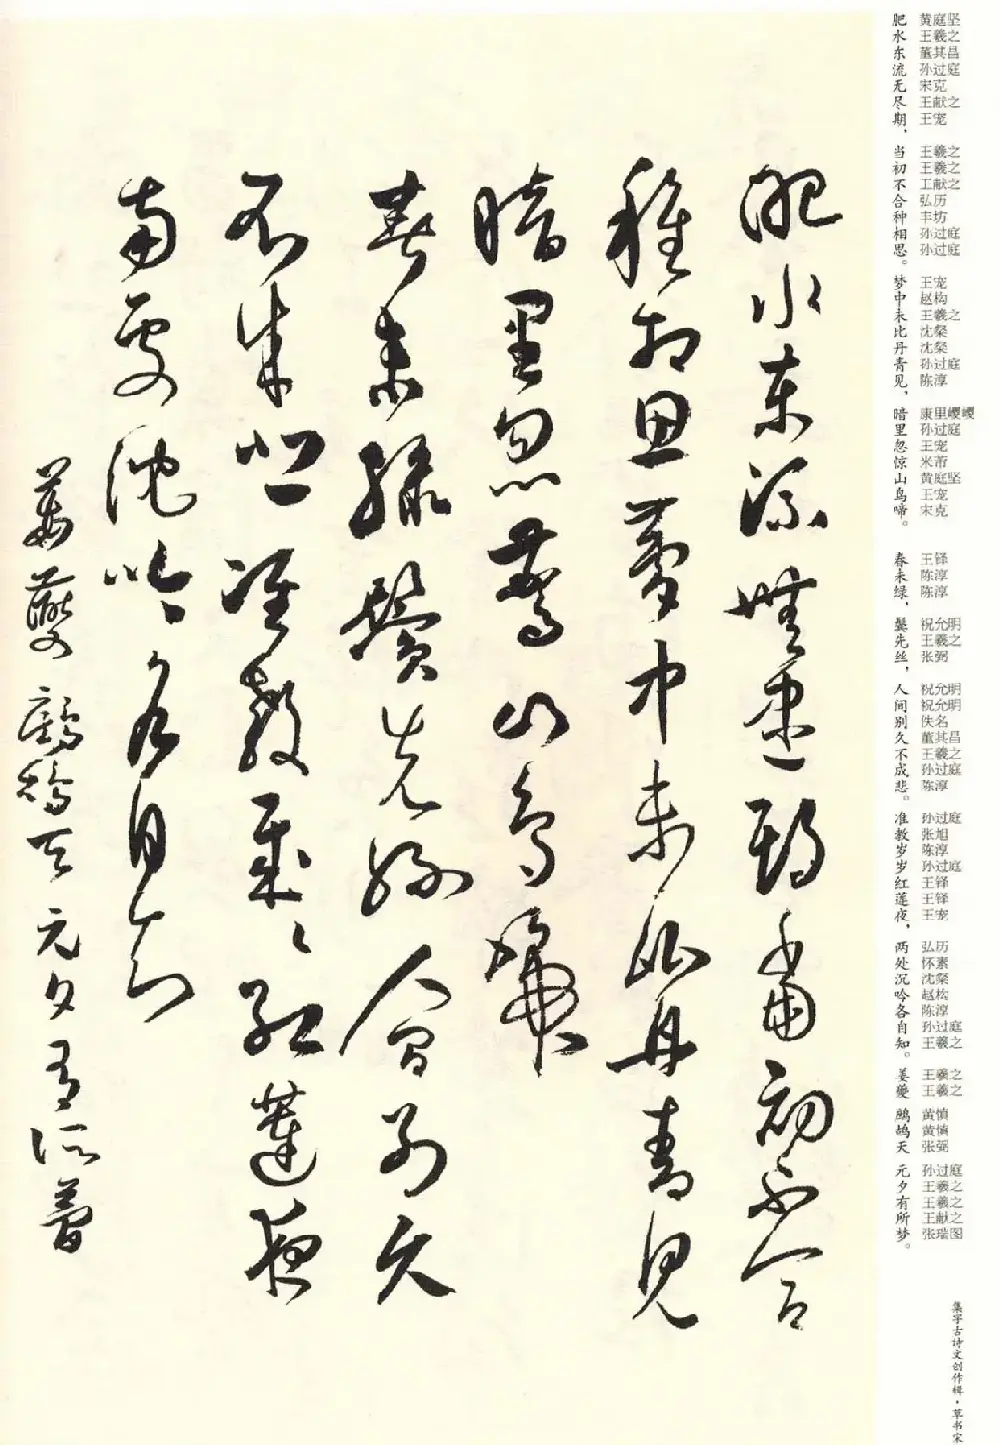 肥水東流無盡期當初不合
種相思夢中未比丹青見
暗里忽驚山鳥啼
春未綠鬢先絲人間別久
不成悲准教歲歲紅蓮夜
兩處沈吟各自知
姜夔鷓鴣天元夕有所夢
肥 黄庭坚
水 王羲之
东 董其昌
流 孙过庭
无 宋克
尽 王献之
期， 王宠
当 王羲之
初 王羲之
不 王献之
合 弘历
种 丰坊
相 孙过庭
思。 孙过庭
梦 王宠
中 赵构
未 王羲之
比 沈粲
丹 沈粲
青 孙过庭
见， 陈淳
暗 康里巎巎
里 孙过庭
忽 王宠
惊 米芾
山 黄庭坚
鸟 王宠
啼。 宋克
春 王铎
未 陈淳
绿， 陈淳
鬓 祝允明
先 王羲之
丝， 张弼
人 祝允明
间 祝允明
别 佚名
久 董其昌
不 王羲之
成 孙过庭
悲。 陈淳
准 孙过庭
教 张旭
岁 陈淳
岁 孙过庭
红 王铎
莲 王铎
夜， 王宠
两 弘历
处 怀素
沉 沈粲
吟 赵构
各 陈淳
自 孙过庭
知。 王羲之
姜 王羲之
夔 王羲之
鹧 黄慎
鸪 黄慎
天 张弼
元 孙过庭
夕 王羲之
有 王羲之
所 王献之
梦。 张瑞图
集字古诗文创作辑·草书宋